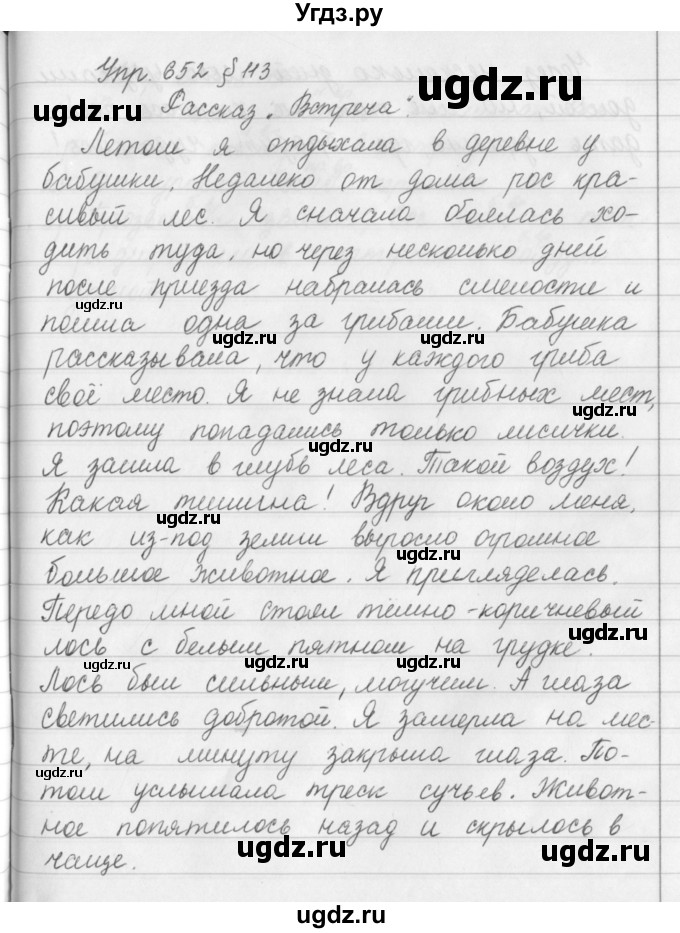 Угдз.ру
Упр. 652 § 113
ugdz.ru ugdz.ru
Рассказ. Встреча.
Летом я отдыхала в деревне у
бабушки. Недалеко от дома рос кра-
ugdz.ru ugdz.ru
сивый лес. Я сначала боялась хо-
дить туда, но через несколько дней
после приезда набралась смелости и
ugdz.ru ugdz.ru
пошла одна за грибами. Бабушка
рассказывала, что у каждого гриба
своё место. Я не знала грибных мест,
ugdz.ru
поэтому попадались только лисички.
ugdz.ru
Я зашла в глубь леса. Такой воздух!
Какая тишина! Вдруг около меня,
ugdz.ru
как из-под земли выросло огромное
ugdz.ru
большое животное. Я пригляделась.
Передо мной стоял тёмно-коричневый
ugdz.ru
лось с белым пятном на грудке.
ugdz.ru ugdz.ru ugdz.ru
Лось был сильным, могучим. А глаза
светились добротой. Я замерла на мес-
те, на минуту закрыла глаза. По-
ugdz.ru
том услышала треск сучьев. Живот-
ное попятилось назад и скрылось в
ugdz.ru ugdz.ru
чаще.
ugdz.ru